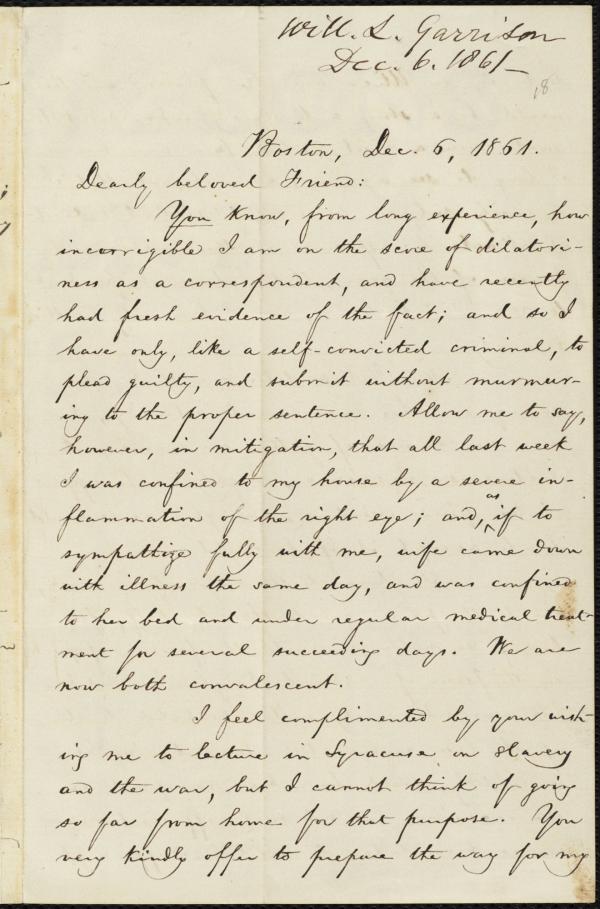 Will. L. Garrison
Dec. 6. 1861—
18
Boston, Dec. 6, 1861.
Dearly beloved Friend:
You know, from long experience, how
incorrigible I am on the score of dilatori-
ness as a correspondent, and have recently
had fresh evidence of the fact; and so I
have only, like a self-convicted criminal, to
plead guilty, and submit without murmur-
ing to the proper sentence. Allow me to say,
however, in mitigation, that all last week
I was confined to my house by a severe in-
flammation of the right eye; and, as if to
sympathize fully with me, wife came down
with illness the same day, and was confined
to her bed and under regular medical treat-
ment for several succeeding days. We are
now both convalescent.
I feel complimented by your wish-
ing me to lecture in Syracuse on slavery
and the war, but I cannot think of going
so far from home for that purpose. You
very kindly offer to prepare the way for my